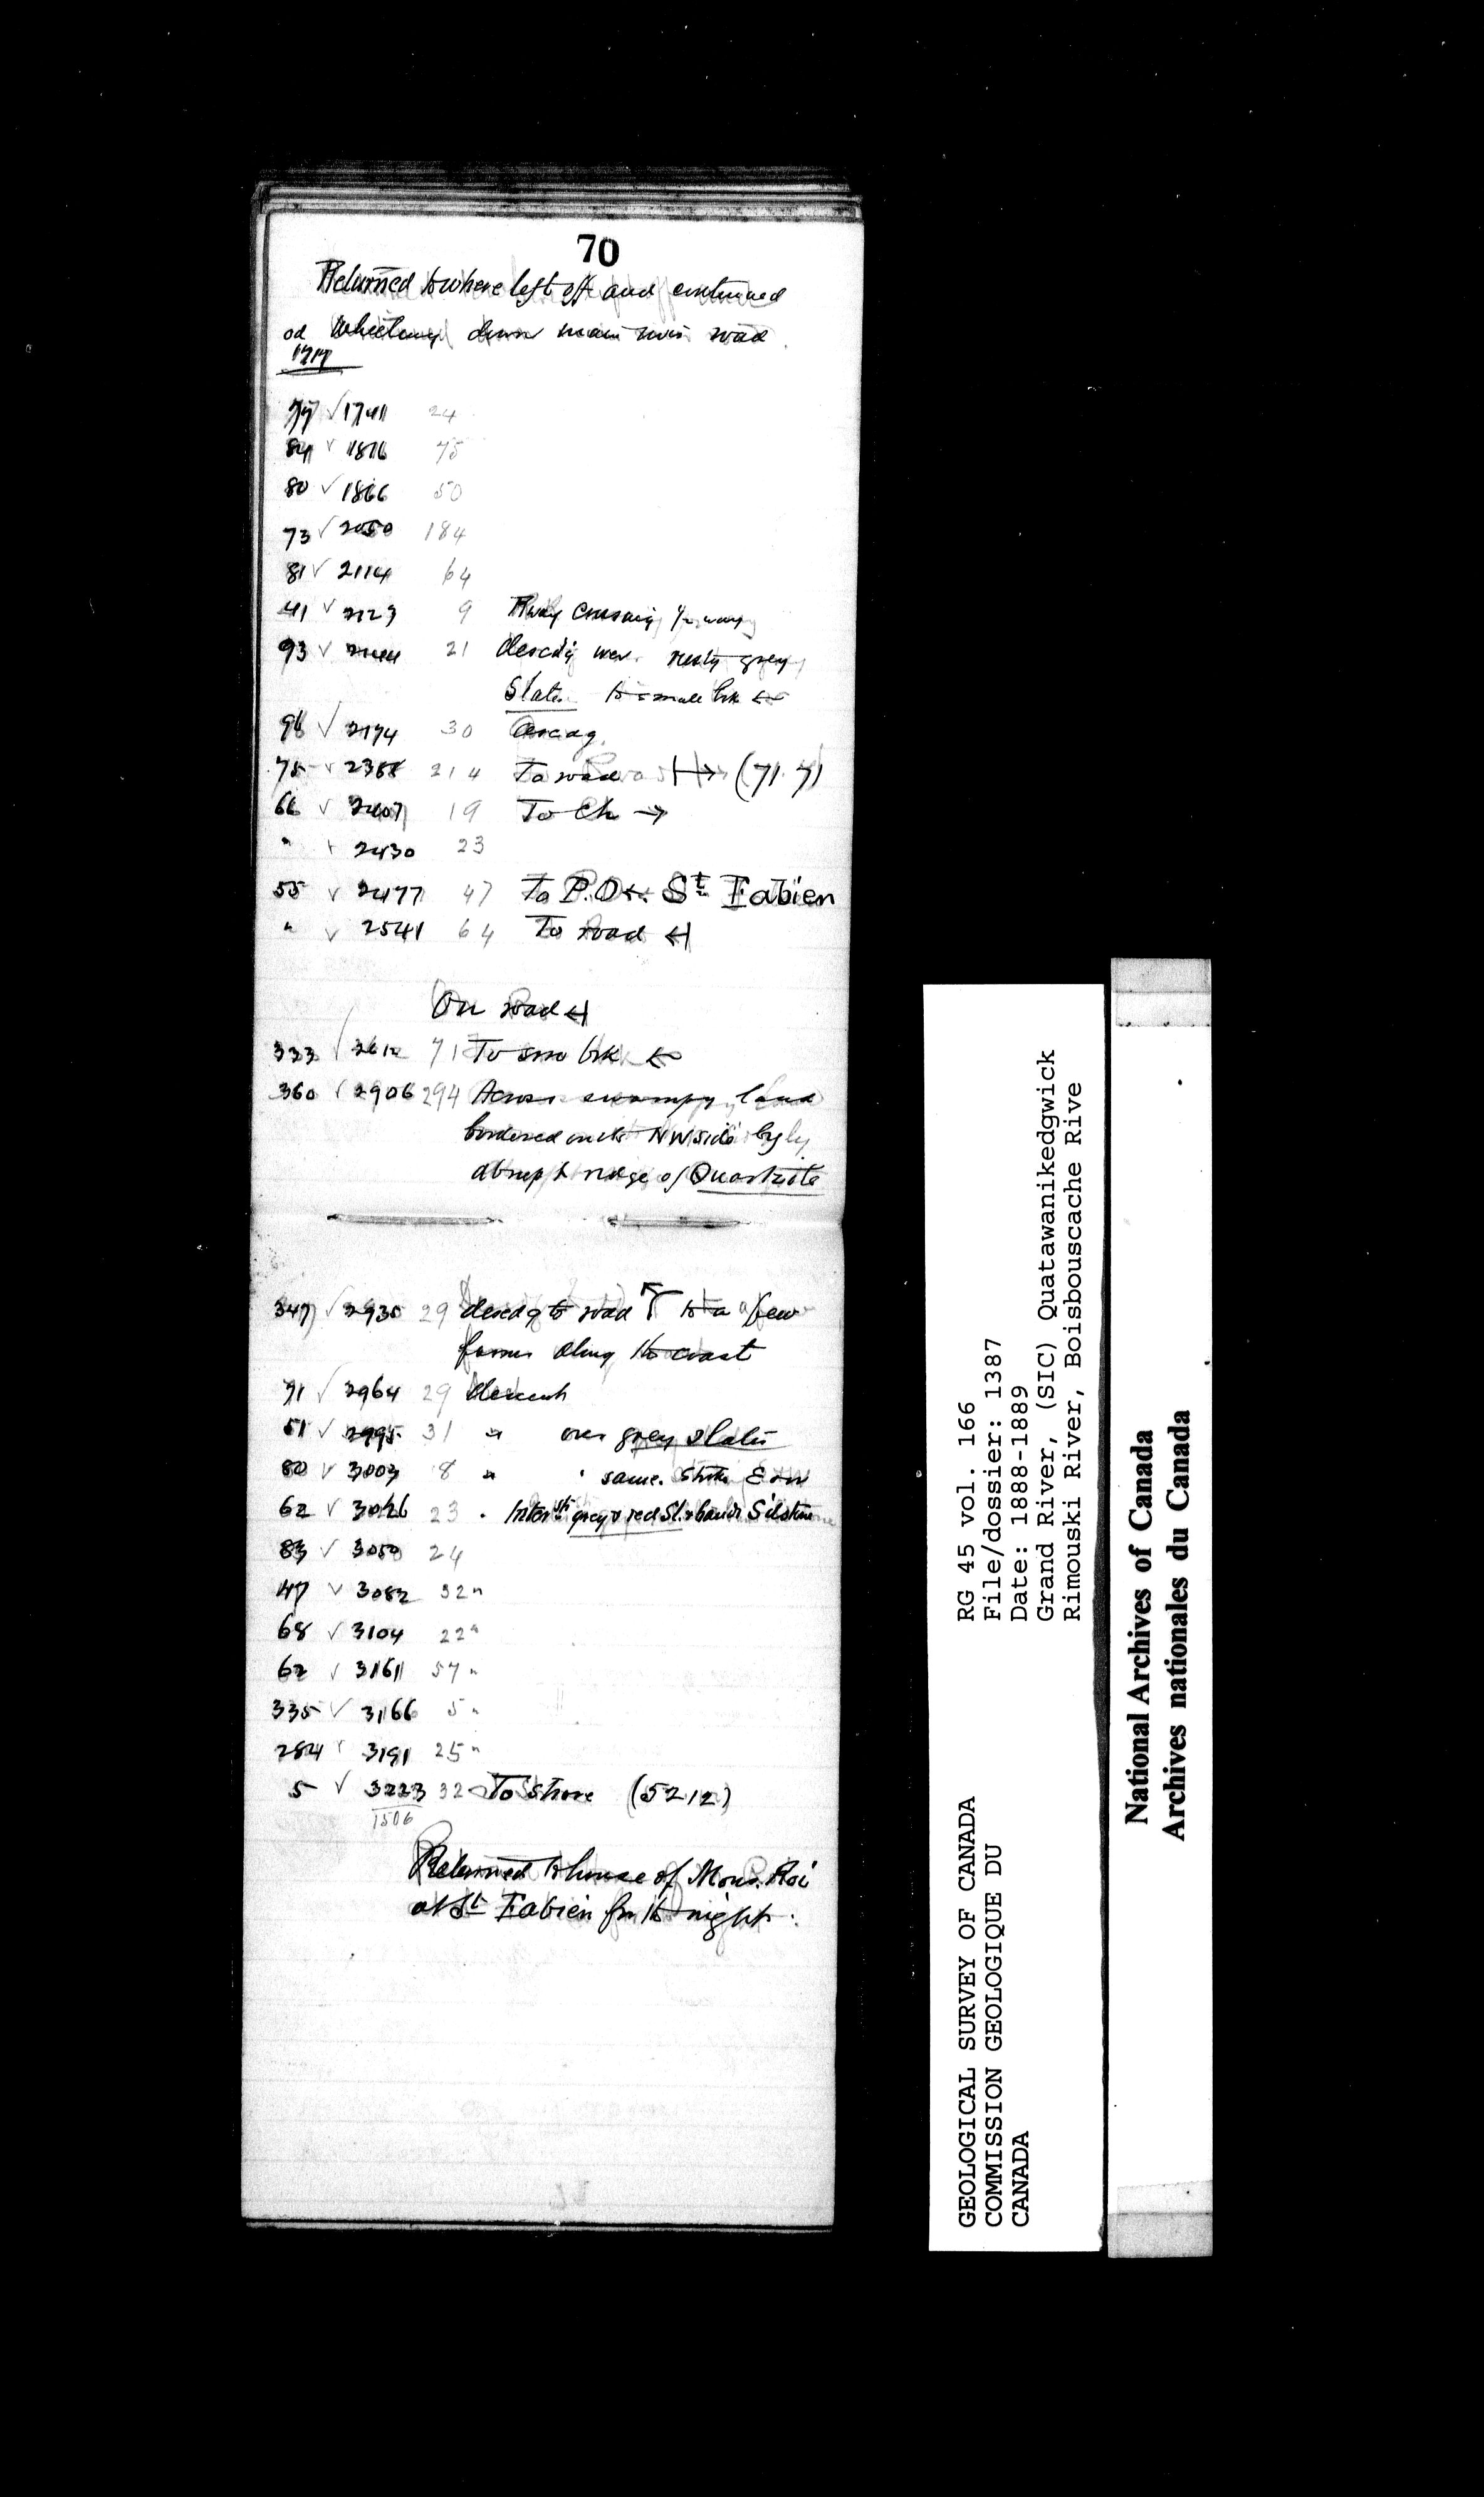 70
Returned to where left off and continued
od Wheeling down main river road
1717
77 √ 1741 24
84 √ 1816 75
80 √ 1866 50
73 √ 2050 184
81 √ 2114 64
41 √ 2123 9 Rway crossing ½ way
93 √ 2144 21 descdg over rusty grey
Slate to small brk ←
96 √ 2174 30 descdg.
75 √ 2388 214 To road |→ (71.7)
66 √ 2407 19 To Ch →
" √ 2430 23
55 √ 2477 47 To P.O ←. St Fabien
" √ 2541 64 To road ←|
On road ←|
333 √ 2612 71 To sm brk ←
360 √ 2906 294 Across swampy land
bordered on its NW side by
abrupt ridge of Quartzite
347 √ 2935 29 descdg to road to a few
farms along the coast
71 √ 2964 29 descent
51 √ 2995 31 " over grey slate
80 √ 3003 8 " " same. Strike E & W
62 √ 3026 23 " Interst grey & red Sl. & bands Silstone
83 √ 3050 24
47 √ 3082 32 "
68 √ 3104 22 "
62 √ 3161 57 "
335 √ 3166 5 "
284 √ 3191 25 "
5 √ 3223 32 To Shore (5212)
1506
Returned to house of Mons. Roi
at St Fabien for the night.
GEOLOGICAL SURVEY OF CANADA
COMMISSION GEOLOGIQUE DU
CANADA
RG 45 vol. 166
File/dossier: 1387
Date: 1888-1889
Grand River, (SIC) Quatawanikedgwick
Rimouski River, Boisbouscache Rive
National Archives of Canada
Archives nationales du Canada